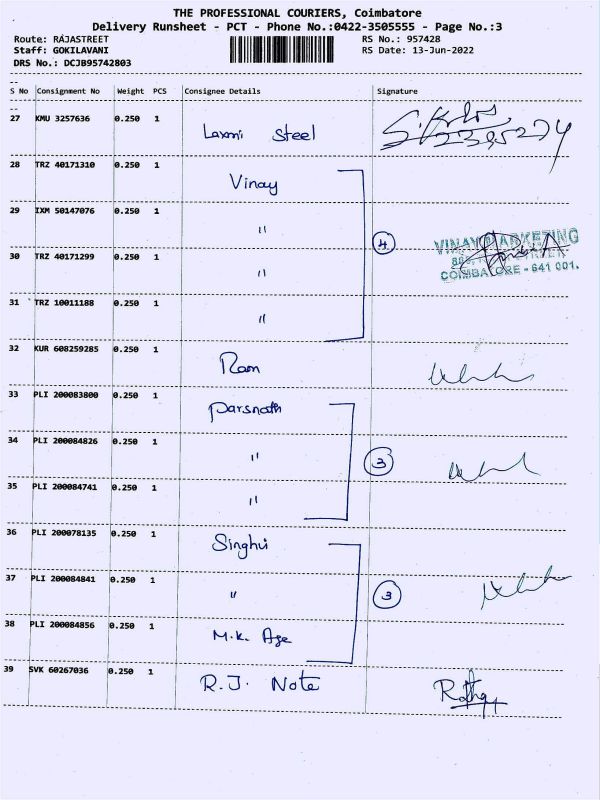 THE PROFESSIONAL COURIERS, Coimbatore
Delivery Runsheet - PCT - Phone No.:0422-3505555 - Page No.:3
Route: RAJASTREET RS No.: 957428
Staff: GOKILAVANI RS Date: 13-Jun-2022
DRS No.: DCJB95742803
S No Consignment No Weight PCS Consignee Details Signature
27 KMU 3257636 0.250 1 Laxmi Steel
28 TRZ 40171310 0.250 1 Vinay
29 IXM 50147076 0.250 1 "
4
VINAY MARKETING
30 TRZ 40171299 0.250 1 "
COIMBATORE - 641 001.
31 TRZ 10011188 0.250 1 "
32 KUR 608259285 0.250 1 Ram
33 PLI 200083800 0.250 1 Parsnath
34 PLI 200084826 0.250 1 "
3
35 PLI 200084741 0.250 1 "
36 PLI 200078135 0.250 1 Singhvi
37 PLI 200084841 0.250 1 "
3
38 PLI 200084856 0.250 1 M.K. Age
39 SVK 60267036 0.250 1 R.J. Note